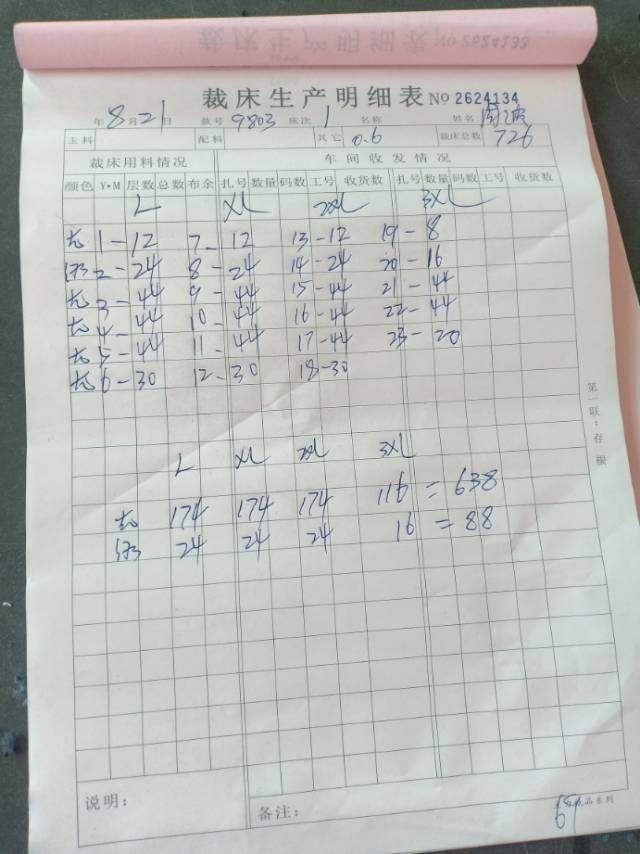 裁床生产明细表 No 2624134
年 8 月 21 日 款号 9803 床次 1 名称 姓名
主料 配料 其它 0.6 裁床总数 726
裁床用料情况 车间收发情况
颜色 Y·M 层数 总数 布余 扎号 数量 码数 工号 收货数 扎号 数量 码数 工号 收货数
L XL 2XL 3XL
1-12 7-12 13-12 19-8
2-24 8-24 14-24 20-16
3-44 9-44 15-44 21-44
4-44 10-44 16-44 22-44
5-44 11-44 17-44 23-20
6-30 12-30 18-30
第一联:存根
L XL 2XL 3XL
174 174 174 116 = 638
24 24 24 16 = 88
说明:
备注: